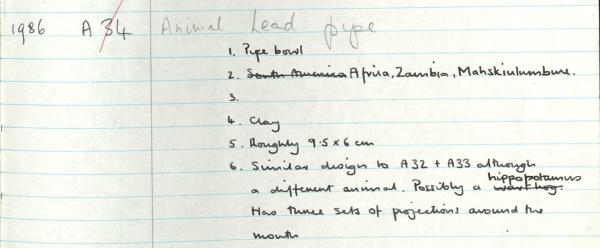 1986 A 34 Animal head pipe
1. Pipe bowl
2. South America Africa, Zambia, Mahskiulumbwe.
3.
4. Clay
5. Roughly 9.5 x 6 cm
6. Similar design to A32 + A33 although
a different animal. Possibly a wart hog. hippopotamus
Has three sets of projections around the
mouth